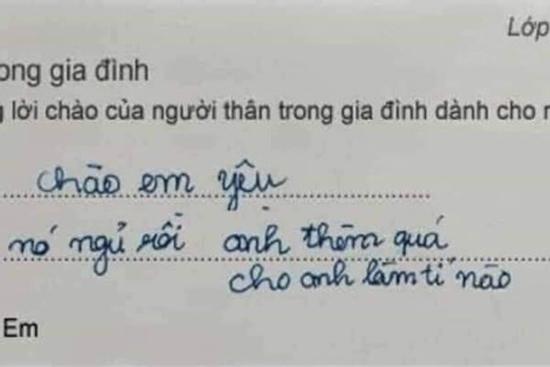 Lớp
ong gia đình
lời chào của người thân trong gia đình dành cho
chào em yêu
nó ngủ rồi anh thèm quá
cho anh làm tí nào
Em